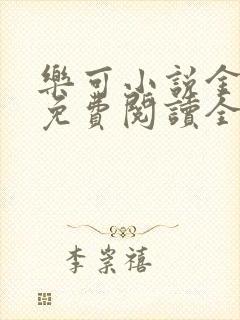 樂可小說全
免費閱讀全
李崇禧